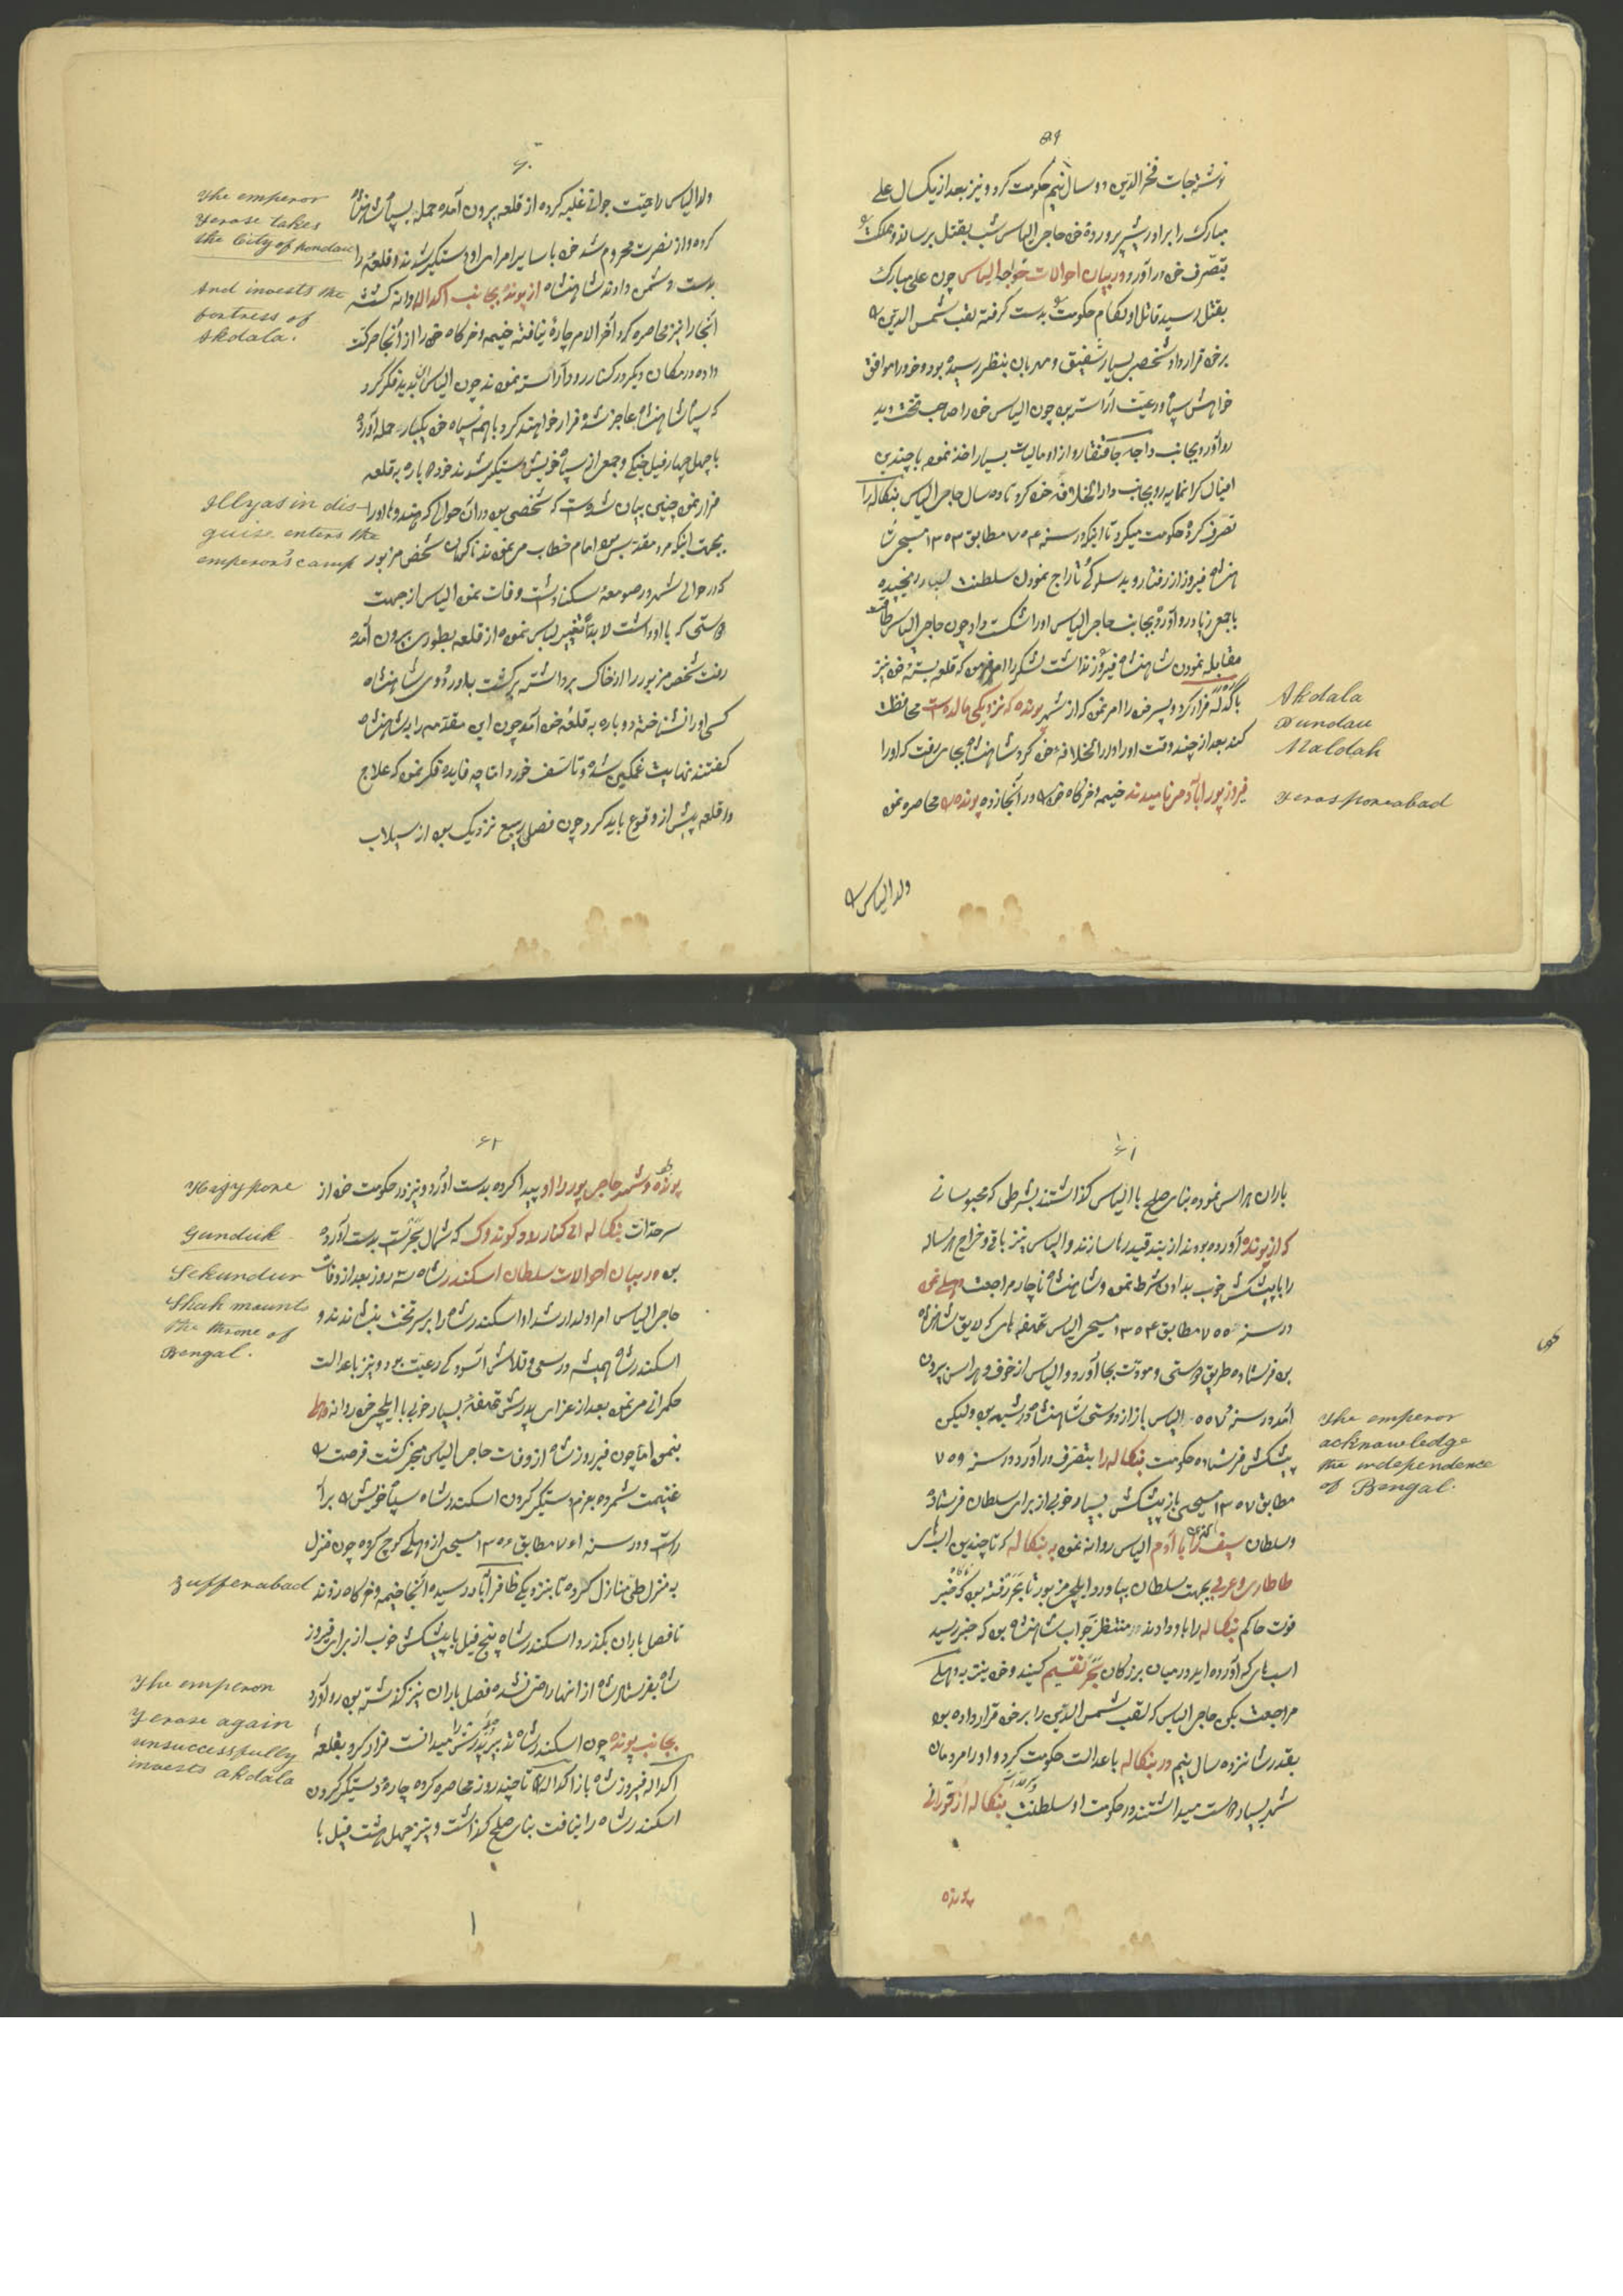 ۵۹
نوشتجات فخرالدین دو سال نیم حکومت کرد و نیز بعد از یکسال علی
مبارک را برادر شیر پرورده خود حاجی الیاس شب بقتل رساند و مملکت
بتصرف خود درآورد در بیان احوالات خواجه الیاس چون علی مبارک
بقتل رسید قاتل او تمام حکومت بدست گرفته لقب شمس الدین
بر خود قرار داد شخصی بسیار شفیق و مهربان بنظر رسیده بود و خود را موافق
خواهش سپاه و رعیت آراسته بود چون الیاس خود را صاحب تخت دید
رو آورد بجانب و از او مالیات بسیار اخذ نموده با چندین
رو بجانب دارالخلافه خود کرد تا ده سال حاجی الیاس بنگاله را
تصرف کرده حکومت میکرد تا اینکه در سنه ۷۵۴ مطابق ۱۳۵۳ مسیحی
فیروز از رفتار و بدسلوکی تاراج نمودن سلطنت بسیار رنجیده
با جمعی زیاد رو آورد بجانب حاجی الیاس او را شکست داد چون حاجی الیاس طاقت
مقابله نمودن شاهنشاه فیروز نداشت لشکر را که قلعه بسته خود نیز
با گداله فرار کرد و پسر خود را امر نمود که از شهر پونده که نزدیکی مالده است محافظت
کند بعد از چند وقت او را و دارالخلافه خود کرد شاهنشاه بجایی رفت که او را
فیروزپورآباد می نامیدند خیمه و خرگاه خود در آنجا زده پونده را محاصره نمود
ولد الیاس
Akdala
Pundau
Maldah
Yerosporeabad
۶۰
ولد الیاس را حیت جوانی غلبه کرده از قلعه بیرون آمده حمله بسپاه شاهنشاه
کرده و از نصرت محروم شد خود با سایر امرای او دستگیر شدند و قلعه را
بدست دشمن دادند شاهنشاه از پونده بجانب اکداله روانه گشته
آنجا را نیز محاصره کرد آخر الامر چاره نیافته خیمه و خرگاه خود را از آنجا حرکت
داده در مکان دیگر در کنار رود آراسته نمودند چون الیاس این بدید فکر کرد
که سپاه شاهنشاه عاجز شده فرار خواهند کرد با همه سپاه خود یکبار حمله آورده
با چهل چهار فیل جنگی و جمعی از سپاه خویش دستگیر شدند خود دوباره به قلعه
فرار نمود چنین بیان شده است که شخصی بود در آن حوالی که هندوها او را
بجهت اینکه مرد مقدسی بود امام خطاب می نمودند ناگهان شخص مزبور
که در حوالی شهر در صومعه سکنا داشت وفات نمود الیاس از جهت
دوستی که با او داشت لابداً تغییر لباس نموده از قلعه بطوری بیرون آمده
رفت شخص مزبور را از خاک برداشته برگشت بدر اردوی شاهنشاه
کسی او را نشناخته دوباره به قلعه خود آمد چون این مقدمه را بشاهنشاه
گفتند نهایت غمگین شده و تاسف خورد اما چه فایده فکر نمود که علاج
واقعه پیش از وقوع باید کرد چون فصل ربیع نزدیک بود از سیلاب
The emperor
Yerose takes
the City of pondau
And invests the
fortress of
Akdala.
Illyas in dis-
guise. enters the
emperor's camp
۶۱
باران هراس نموده بنای صلح با الیاس گذاشتند بشرطی که محبوسانی
که از پونده آورده بودند از بند قید رها سازند و الیاس نیز باقی و خراج هر ساله
را با پیشکش خوب بدادن شرط نمود و شاهنشاه ناچار مراجعت بدهلی نمود
در سنه ۷۵۵ مطابق ۱۳۵۴ مسیحی الیاس تحفه های که لایق شاهنشاه
بود فرستاده طریق دوستی و مودت بجا آورد و الیاس از خوف و هراس بیرون
آمد در سنه ۷۵۷ الیاس باز از دوستی شاهنشاه در شبهه بود ولیکن
پیشکش فرستاده حکومت بنگاله را بتصرف درآورد در سنه ۷۵۹
مطابق ۱۳۵۷ مسیحی باز پیشکش بسیار خوبی از برای سلطان فرستاده
و سلطان آدم الیاس روانه نمود به بنگاله که تا چندین اسبهای
طاطاری و عربی بجهت سلطان بیاورد ایلچی مزبور تا رفته بود که خبر
فوت حاکم بنگاله را باو دادند منتظر جواب شاهنشاه بود که خبر رسید
اسب های که آورده اید در میان بزرگان تقسیم کنید و خود نیت به دهلی
مراجعت بکن حاجی الیاس که لقب شمس الدین را بر خود قرار داده بود
بقدر شانزده سال نیم در بنگاله با عدالت حکومت کرد و او را مردمان
شهر بسیار دوست میداشتند در حکومت او سلطنت بنگاله از
پونده
The emperor
acknowledge
the independence
of Bengal.
۶۲
پونده و شهر حاجی پور را او پیدا کرده بدست آورد و نیز در حکومت خود از
سرحدات بنگاله الی کنار رود گوندوک که شمال است بدست آورده
بود در بیان احوالات سلطان اسکندر شاه سه روز بعد از وفات
حاجی الیاس امرا ولد ارشد او اسکندر شاه را بر سر تخت بنشاندند و
اسکندر شاه همیشه در سعی و تلاش آسودگی رعیت بود و نیز با عدالت
حکمرانی می نمود بعد از عزای پدرش تحفه بسیار خوبی با ایلچی خود روانه دهلی
بنمود اما چون فیروز شاه از وفات حاجی الیاس مخبر گشت فرصت
غنیمت شمرده بعزم دستگیر کردن اسکندر شاه سپاه خویش
در سنه ۷۶۱ مطابق ۱۳۵۹ مسیحی از دهلی کوچ کرده چون منزل
به منزل طی منازل کرده تا بنزدیکی ظافرآباد رسیده آنجا خیمه و خرگاه زدند
تا فصل باران بگذرد اسکندر شاه پنج فیل با پیشکش خوب از برای فیروز
شاه بفرستاد شاه از آنها راضی نشده فصل باران نیز گذشته بود رو آورد
بجانب پونده چون اسکندر شاه تدبیر پدرش را میدانست فرار کرد بقلعه
اکداله فیروز شاه باز اکداله را تا چند روز محاصره کرده چاره دستگیر کردن
اسکندر شاه را نیافت بنای صلح گذاشت و نیز چهل هشت فیل با
Hajypore
Gunduk
Sekundur
Shah mounts
the throne of
Bengal.
Zufferabad
The emperor
Yerose again
unsuccessfully
invests akdala